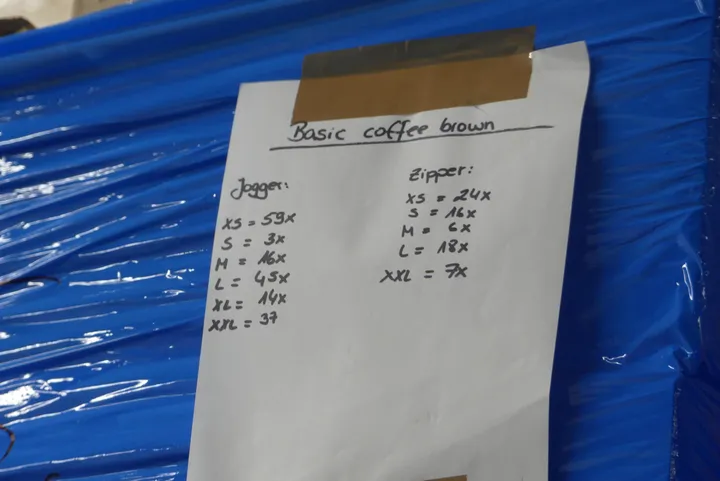 Basic coffee brown
Jogger:
XS = 59x
S = 3x
M = 16x
L = 45x
XL = 14x
XXL = 37
Zipper:
XS = 24x
S = 16x
M = 6x
L = 18x
XXL = 7x